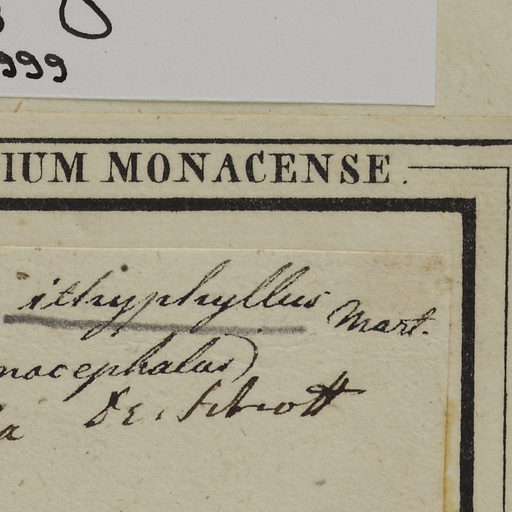 999
IUM MONACENSE.
ithyphyllus Mart.
nocephalus)
a De. Schott